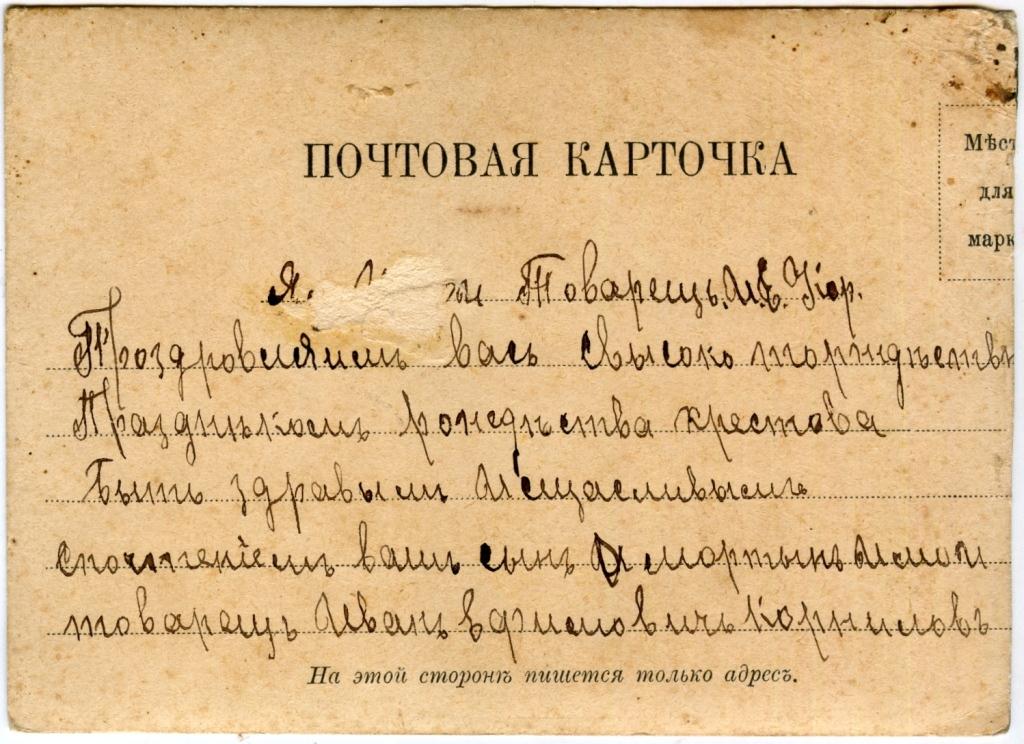 ПОЧТОВАЯ КАРТОЧКА
Мѣст
для
марк
Я. Товарещъ. И. Е. Кор.
Проздровляимъ васъ свысоко торждъств
Праздникомъ рождъства крестова
быть здравыми И щасливымъ
спочтеніемъ вашъ сынъ мортынъ И мой
товарещъ Иванъ Ефимовичъ Корниловъ
На этой сторонѣ пишется только адресъ.